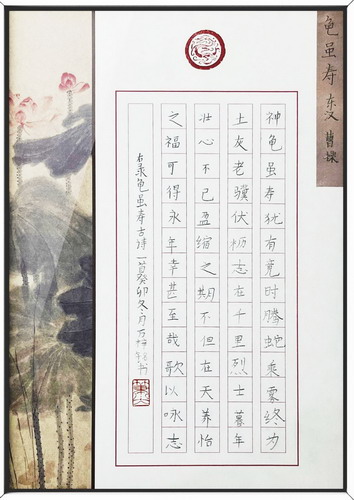 龟虽寿 东汉 曹操
神龟虽寿犹有竟时腾蛇乘雾终为
土灰老骥伏枥志在千里烈士暮年
壮心不已盈缩之期不但在天养怡
之福可得永年幸甚至哉歌以咏志
右录龟虽寿古诗一首癸卯冬月万书